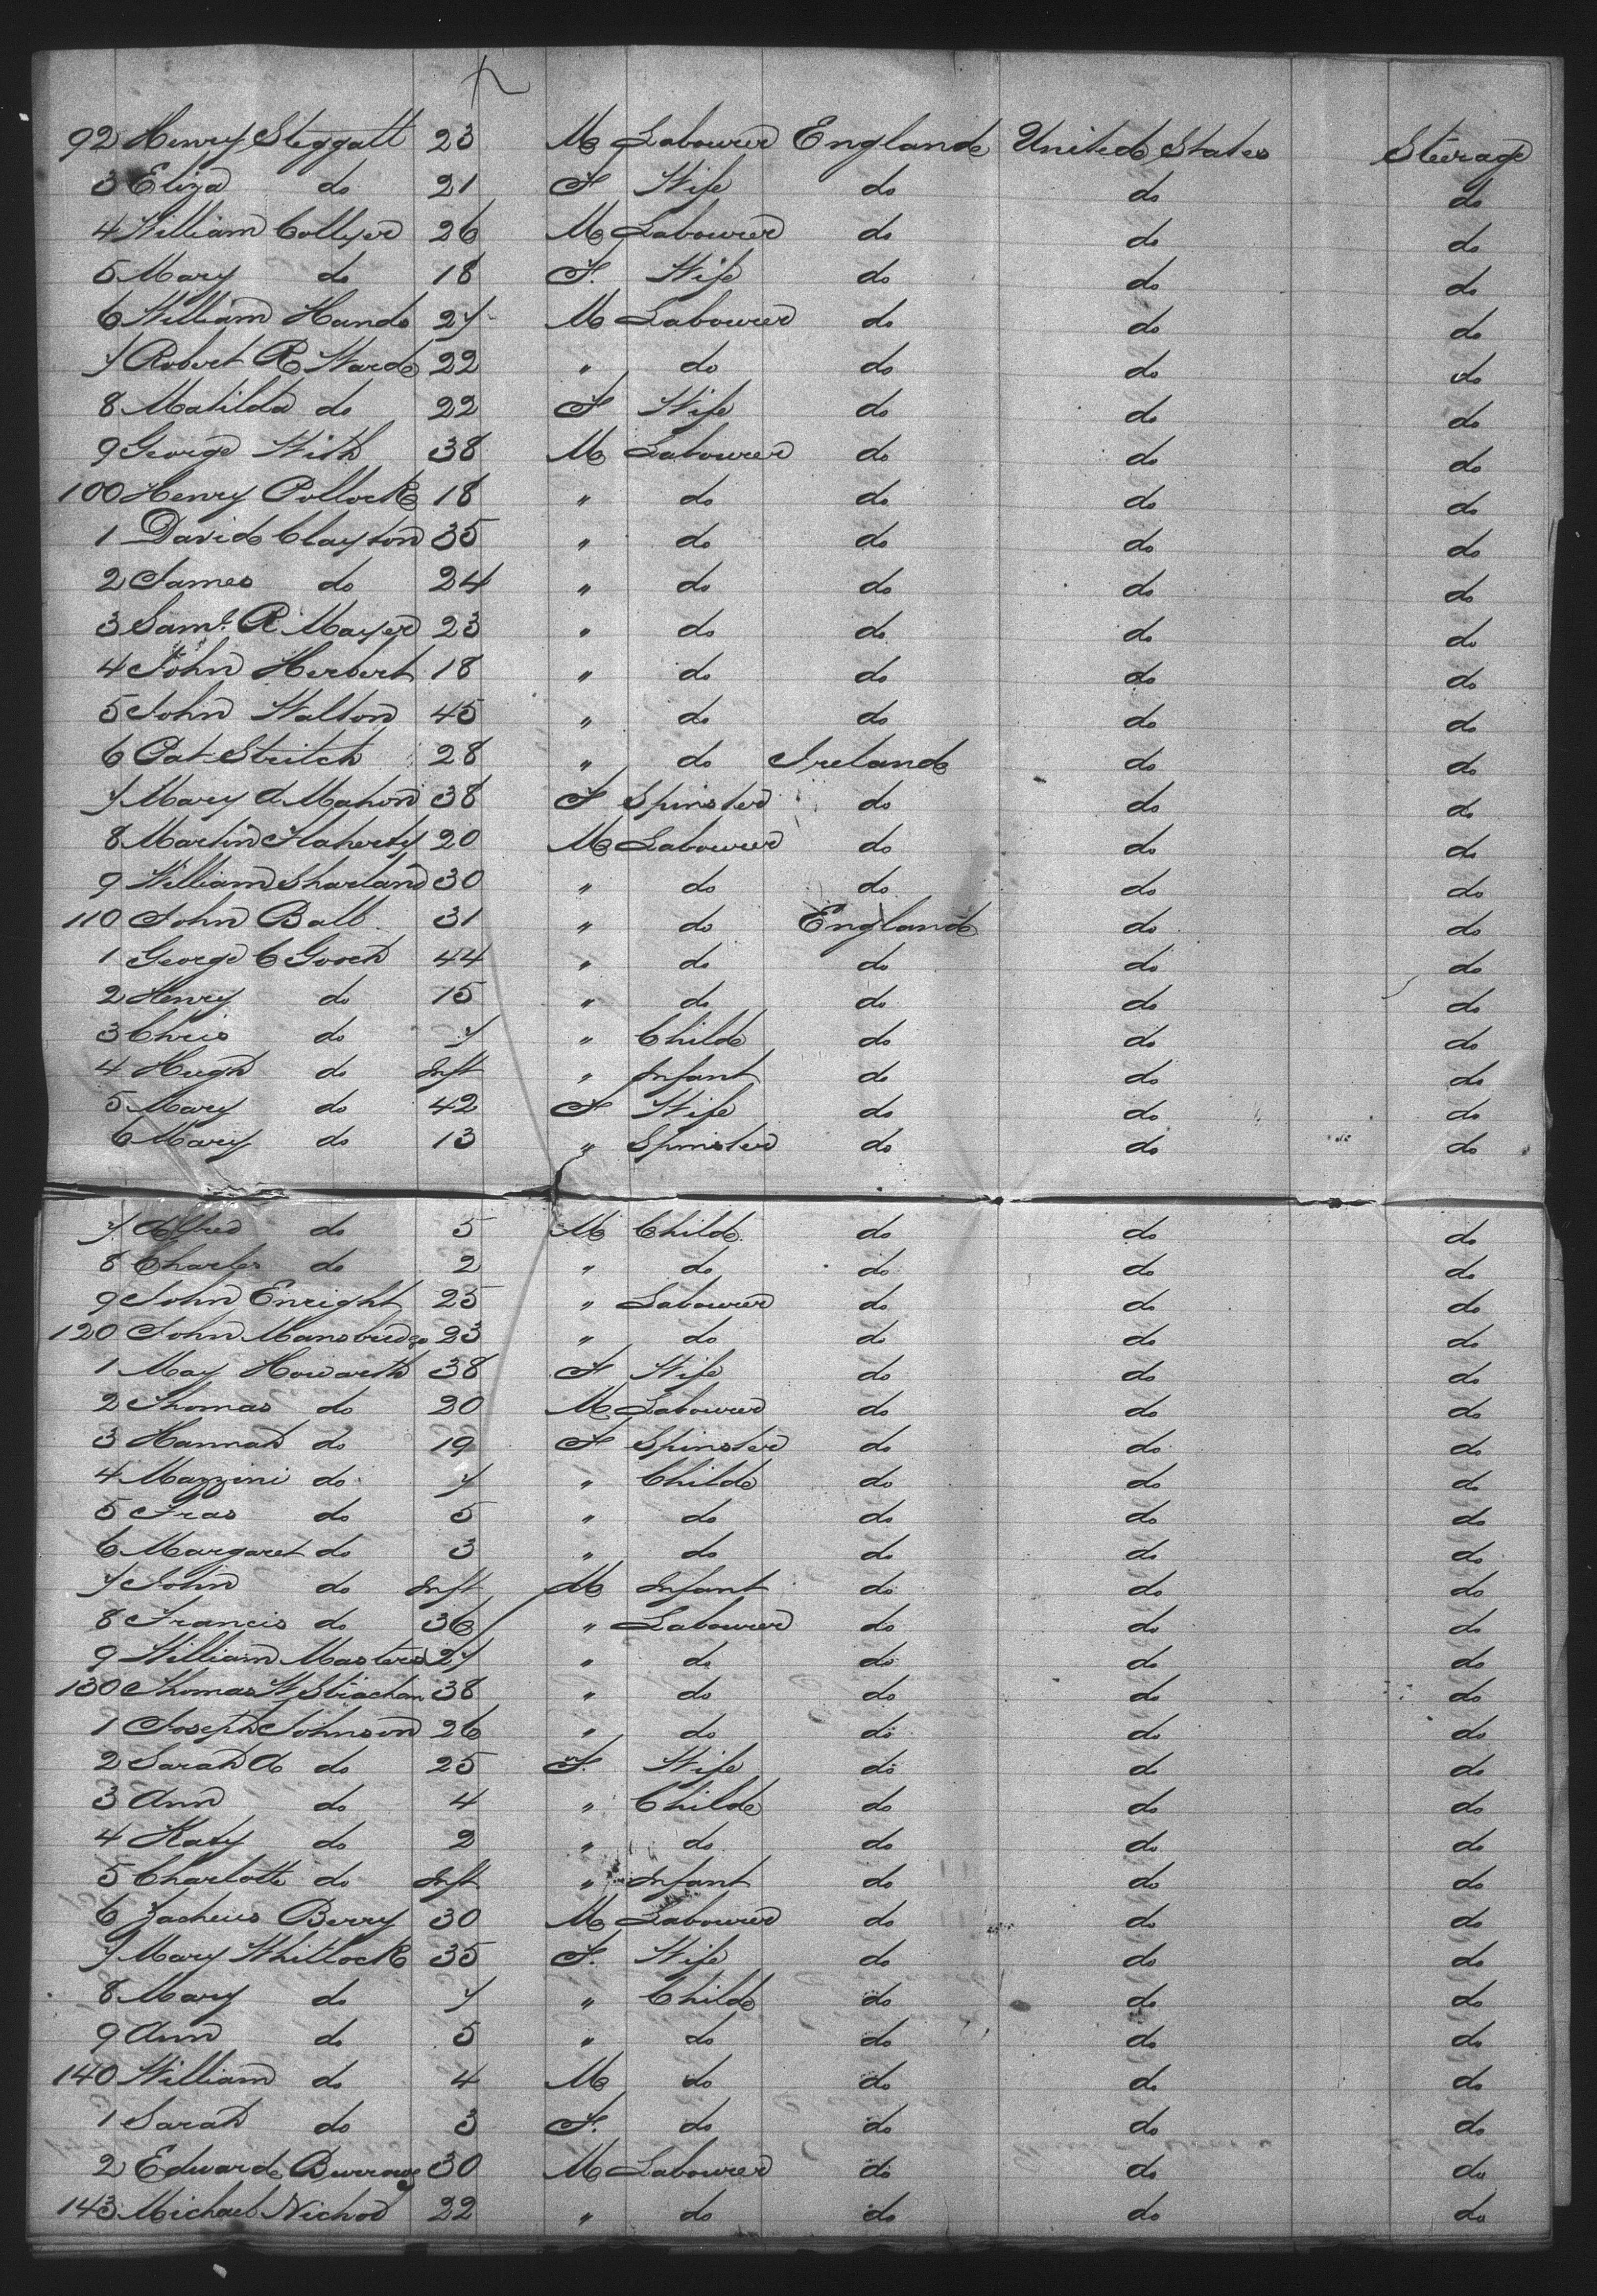 92 Henry Steggatt 23 M Labourer England United States Steerage
3 Eliza do 21 F Wife do do do
4 William Collyer 26 M Labourer do do do
5 Mary do 18 F. Wife do do do
6 William Hands 27 M Labourer do do do
7 Robert R Ward 22 " do do do do
8 Matilda do 22 F Wife do do do
9 George With 38 M Labourer do do do
100 Henry Pollock 18 " do do do do
1 David Clayton 35 " do do do do
2 James do 24 " do do do do
3 Saml. R. Mayer 23 " do do do do
4 John Herbert 18 " do do do do
5 John Walton 45 " do do do do
6 Pat Stritch 28 " do Ireland do do
7 Mary A Mahon 38 F Spinster do do do
8 Martin Flaherty 20 M Labourer do do do
9 William Sharland 30 " do do do do
110 John Ball 31 " do England do do
1 George C Gooch 44 " do do do do
2 Henry do 15 " do do do do
3 Chris do 7 " Child do do do
4 Hugh do Inft " Infant do do do
5 Mary do 42 F Wife do do do
6 Mary do 13 " Spinster do do do
7 Alfred do 5 M Child do do do
8 Charles do 2 " do do do do
9 John Enright 25 " Labourer do do do
120 John Mansbridge 23 " do do do do
1 May Howarth 38 F Wife do do do
2 Thomas do 20 M Labourer do do do
3 Hannah do 19 F Spinster do do do
4 Mazzini do 7 " Child do do do
5 Fras do 5 " do do do do
6 Margaret do 3 " do do do do
7 John do Inft M Infant do do do
8 Francis do 36 " Labourer do do do
9 William Masters 27 " do do do do
130 Thomas W Strachan 38 " do do do do
1 Joseph Johnson 26 " do do do do
2 Sarah A do 25 F. Wife do do do
3 Ann do 4 " Child do do do
4 Katy do 2 " do do do do
5 Charlotte do Inft " Infant do do do
6 Zacheus Berry 30 M Labourer do do do
7 Mary Whitlock 35 F. Wife do do do
8 Mary do 7 " Child do do do
9 Ann do 5 " do do do do
140 William do 4 M do do do do
1 Sarah do 3 F. do do do do
2 Edward Burrows 30 M Labourer do do do
143 Michael Nichol 22 " do do do do